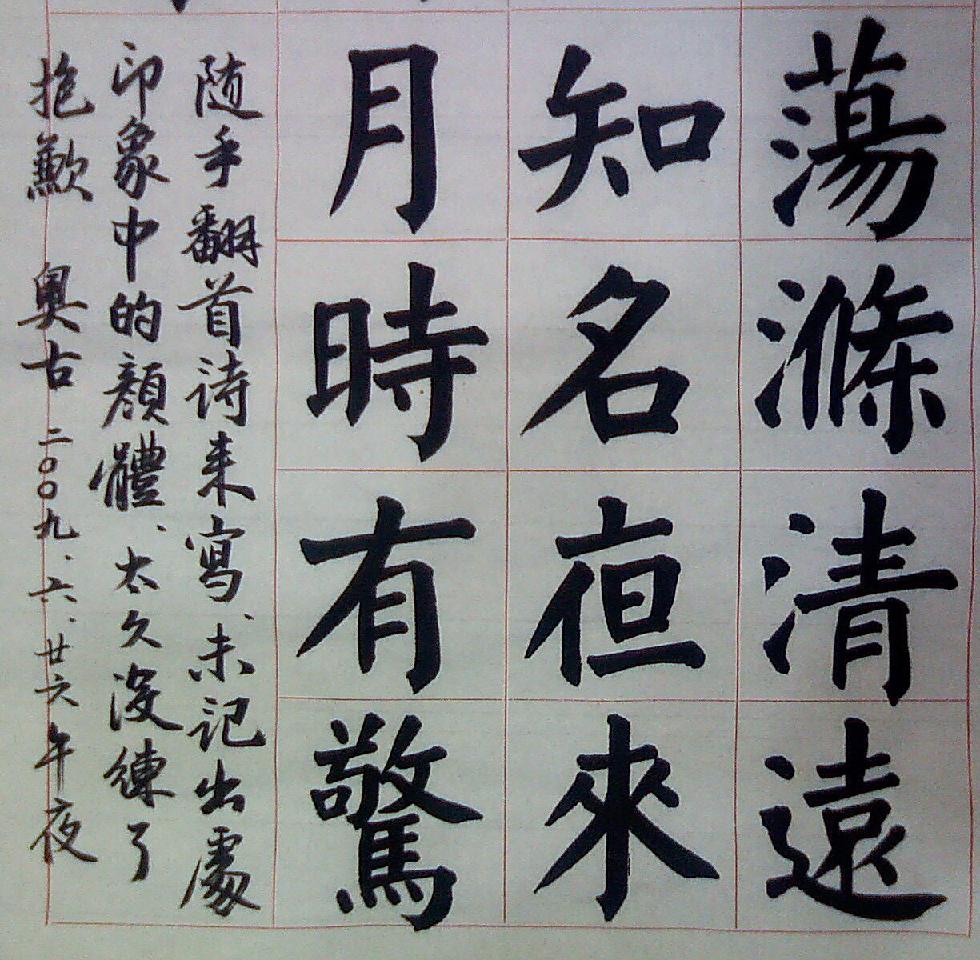 蕩滌清遠
知名亱來
月時有驚
随手翻首诗来寫、未记出處
印象中的顔體、太久没練了
抱歉 奥古 二〇〇九、六、廿六午夜